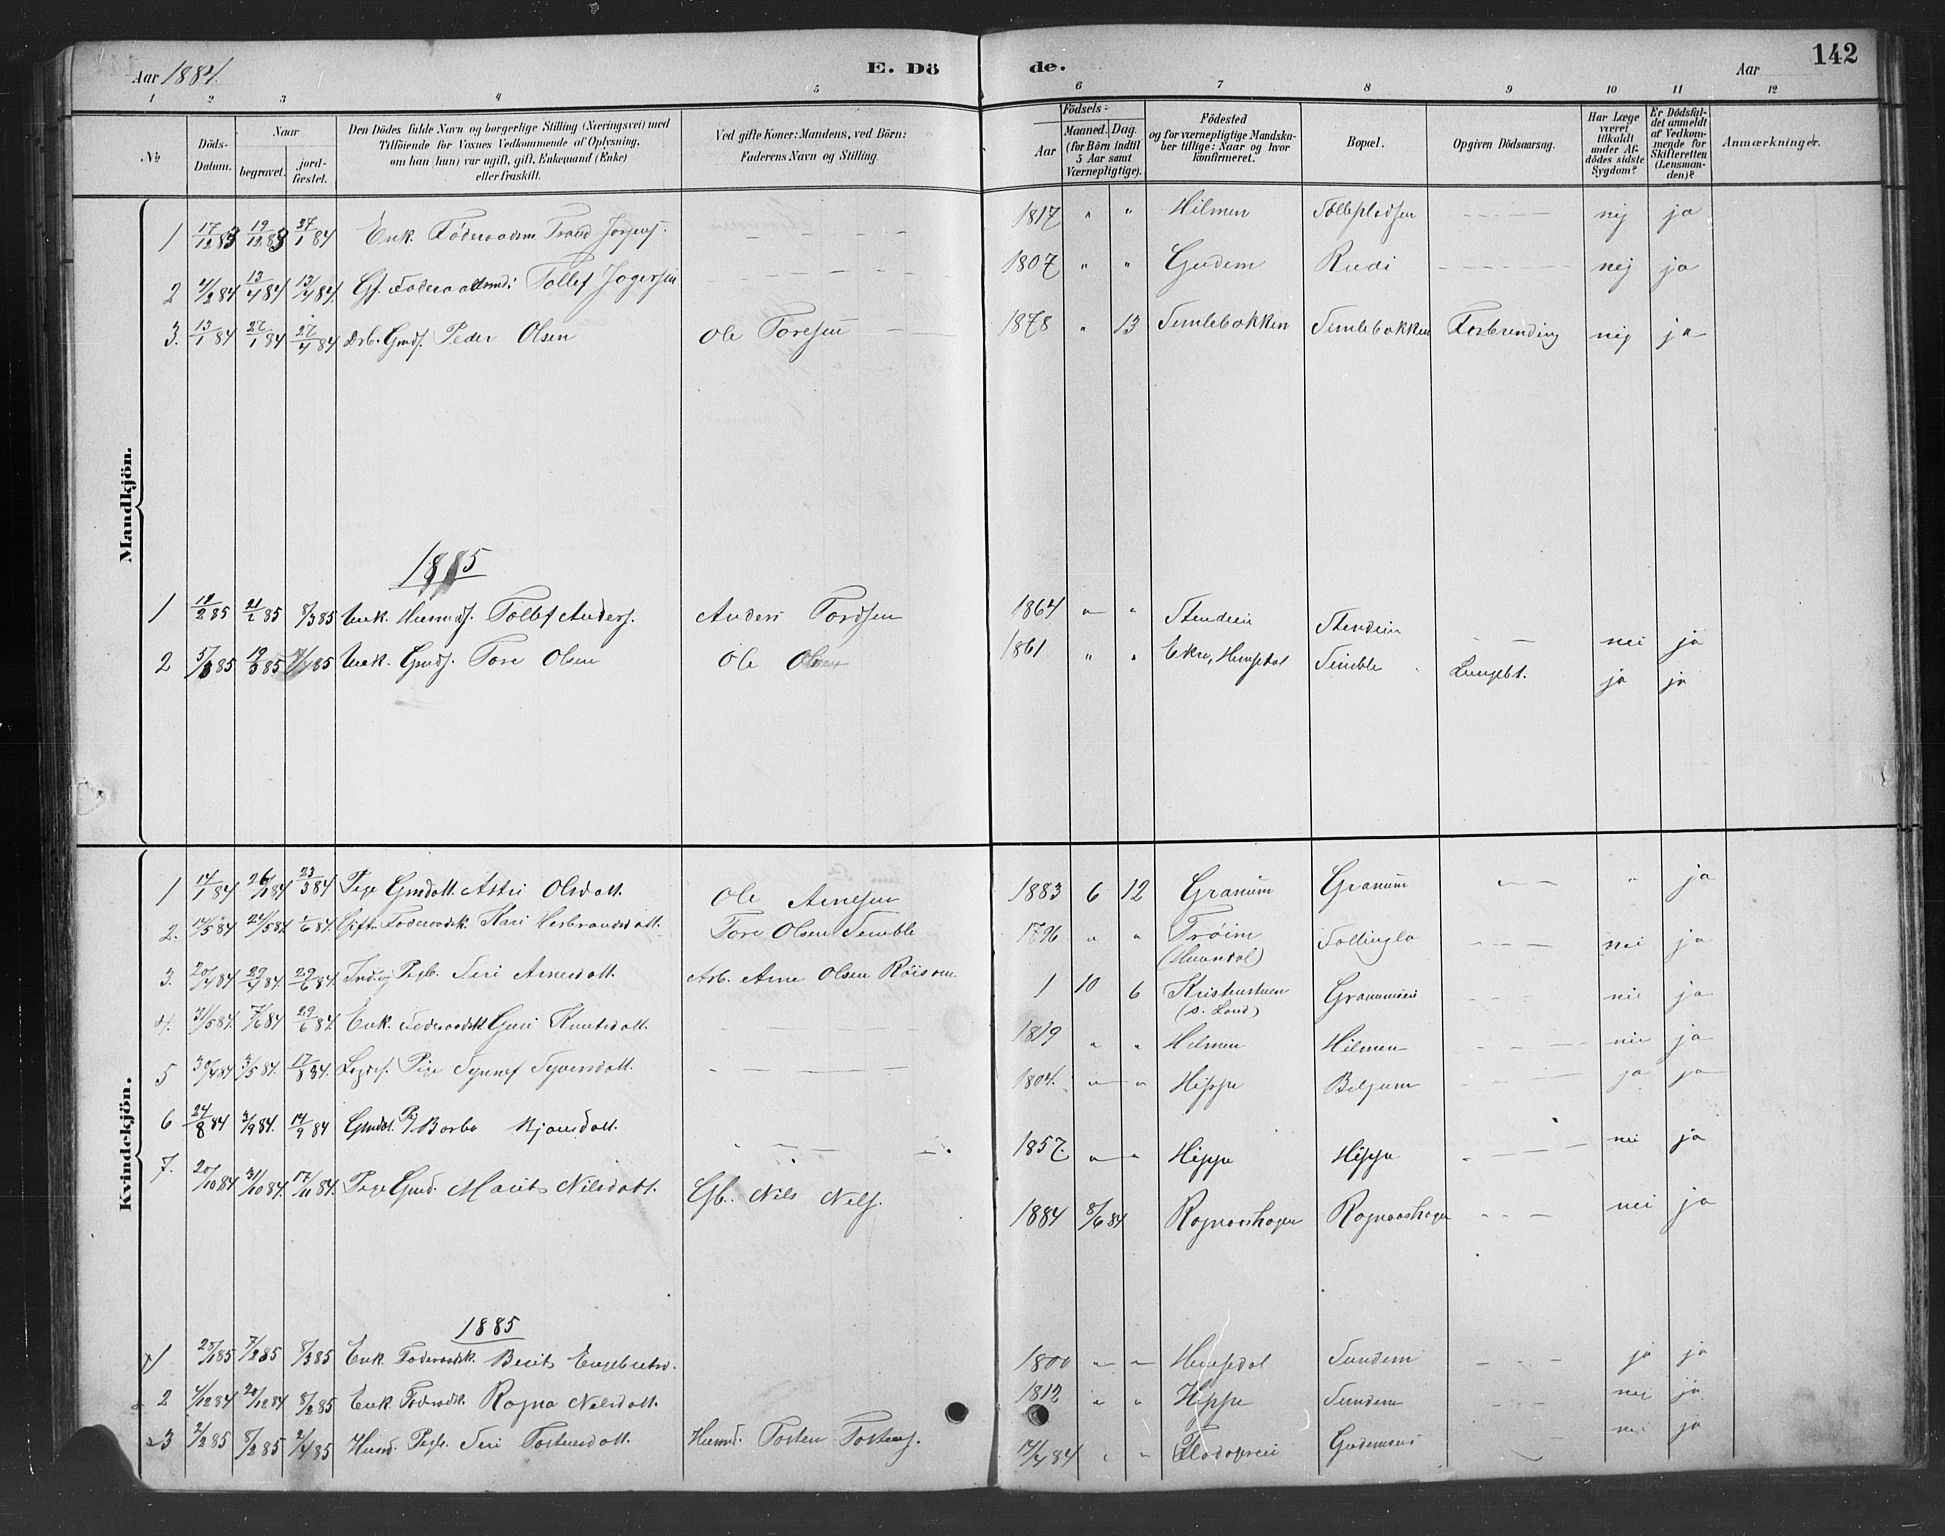 142
Aar 1884.
E. Döde.
Aar
1 2 3 4 5 6 7 8 9 10 11 12
No
Döds-Datum.
Naar
begravet.
jordfæstet.
Den Dödes fulde Navn og borgerlige Stilling (Næringsvei) med
Tilföiende for Voxnes Vedkommende af Oplysning,
om han (hun) var ugift, gift, Enkemand (Enke)
eller fraskilt.
Ved gifte Koner: Mandens, ved Börn:
Faderens Navn og Stilling.
Födsels-
Aar
Maaned. Dag.
(for Börn indtil
5 Aar samt
Værnepligtige).
Födested
og for værnepligtige Mandska-
ber tillige: Naar og hvor
konfirmeret.
Bopæl.
Opgiven Dödsaarsag.
Har Læge
været
tilkaldt
under Af-
dödes sidste
Sygdom?
Er Dödsfal-
det anmeldt
af Vedkom-
mende for
Skifteretten
(Lensman-
den)?
Anmærkninger.
Mandkjön.
1 17/12 83 19/12 83 27/1 84 Enk. Föderaadsm. Trond 1817 " " Hilmen nej ja
2 4/2 84 13/4 84 13/4 84 Gf. Föderaadsmd. Tollef 1807 " " Gudem Rudi nej ja
3. 13/1 84 27/1 84 27/4 84 Arb. Gmds. Peder Olsen Ole Toresen 1878 " 13 Semlebakken Semlebakken Forbrending nej ja
1885
1 12/2 85 21/2 85 8/3 85 Unk. Huusmds. Tollef Anders. Anders Tordsen 1864 " " Stendein Stendein nei ja
2 5/3 85 19/3 85 85 Unk. Gmds. Tore Olsen Ole Olsen 1861 " " Ekre, Hemsedal Semble Lungebt. ja ja
Kvindekjön.
1 14/1 84 26/1 84 23/3 84 Pige Gmdatt. Astri Olsdatt. Ole Arnesen 1883 6 12 Granum Granum " ja
2. 14/5 84 24/5 84 1/6 84 Gift Föderaadsk. Kari Herbrandsdatt. Tore Olsen Semble 1796 " " Tröim
(Hemsdal) nei ja
3. 20/4 84 29/4 84 29/6 84 Pigb. Siri Arnesdatt. Arb. Arne Olsen Röisom 1 10 6 Kristenstuen
(S. Land) nei ja
4. 31/5 84 7/6 84 29/6 84 Enk. Föderaadsk. Guri Knutsdatt. 1819 " " Hilmen Hilmen nei ja
5 30/4 84 3/5 84 17/8 84 Pige Synnef Syversdatt. 1804. " " Hippe Belgum ja ja
6 24/8 84 3/9 84 14/9 84 Gmdat. Pg Barbo 1857. " " Hippe Hippe nei ja
7. 20/10 84 31/10 84 17/11 84 Pige Gmd. Marit Nilsdatt. Gb. Nils Nils. 1884 8/6 84 Rognaashagen Rognaashagen nei ja
1885
1 28/1 85 7/2 85 8/3 85 Enk Föderaadsk. Berit Engebretsd. 1800 " " Hemsedal Sundem ja ja
2 4/12 84 20/12 84 8/3 85 Enk Föderaadsk. Ragna Nilsdatt. 1812 " " Hippe Sundem nei ja
3 2/2 85 8/2 85 2/4 85 Husmd. Pigb. Siri Tostensdatt. Husmd. Tosten Tostens. 14/4 84 " " nei ja